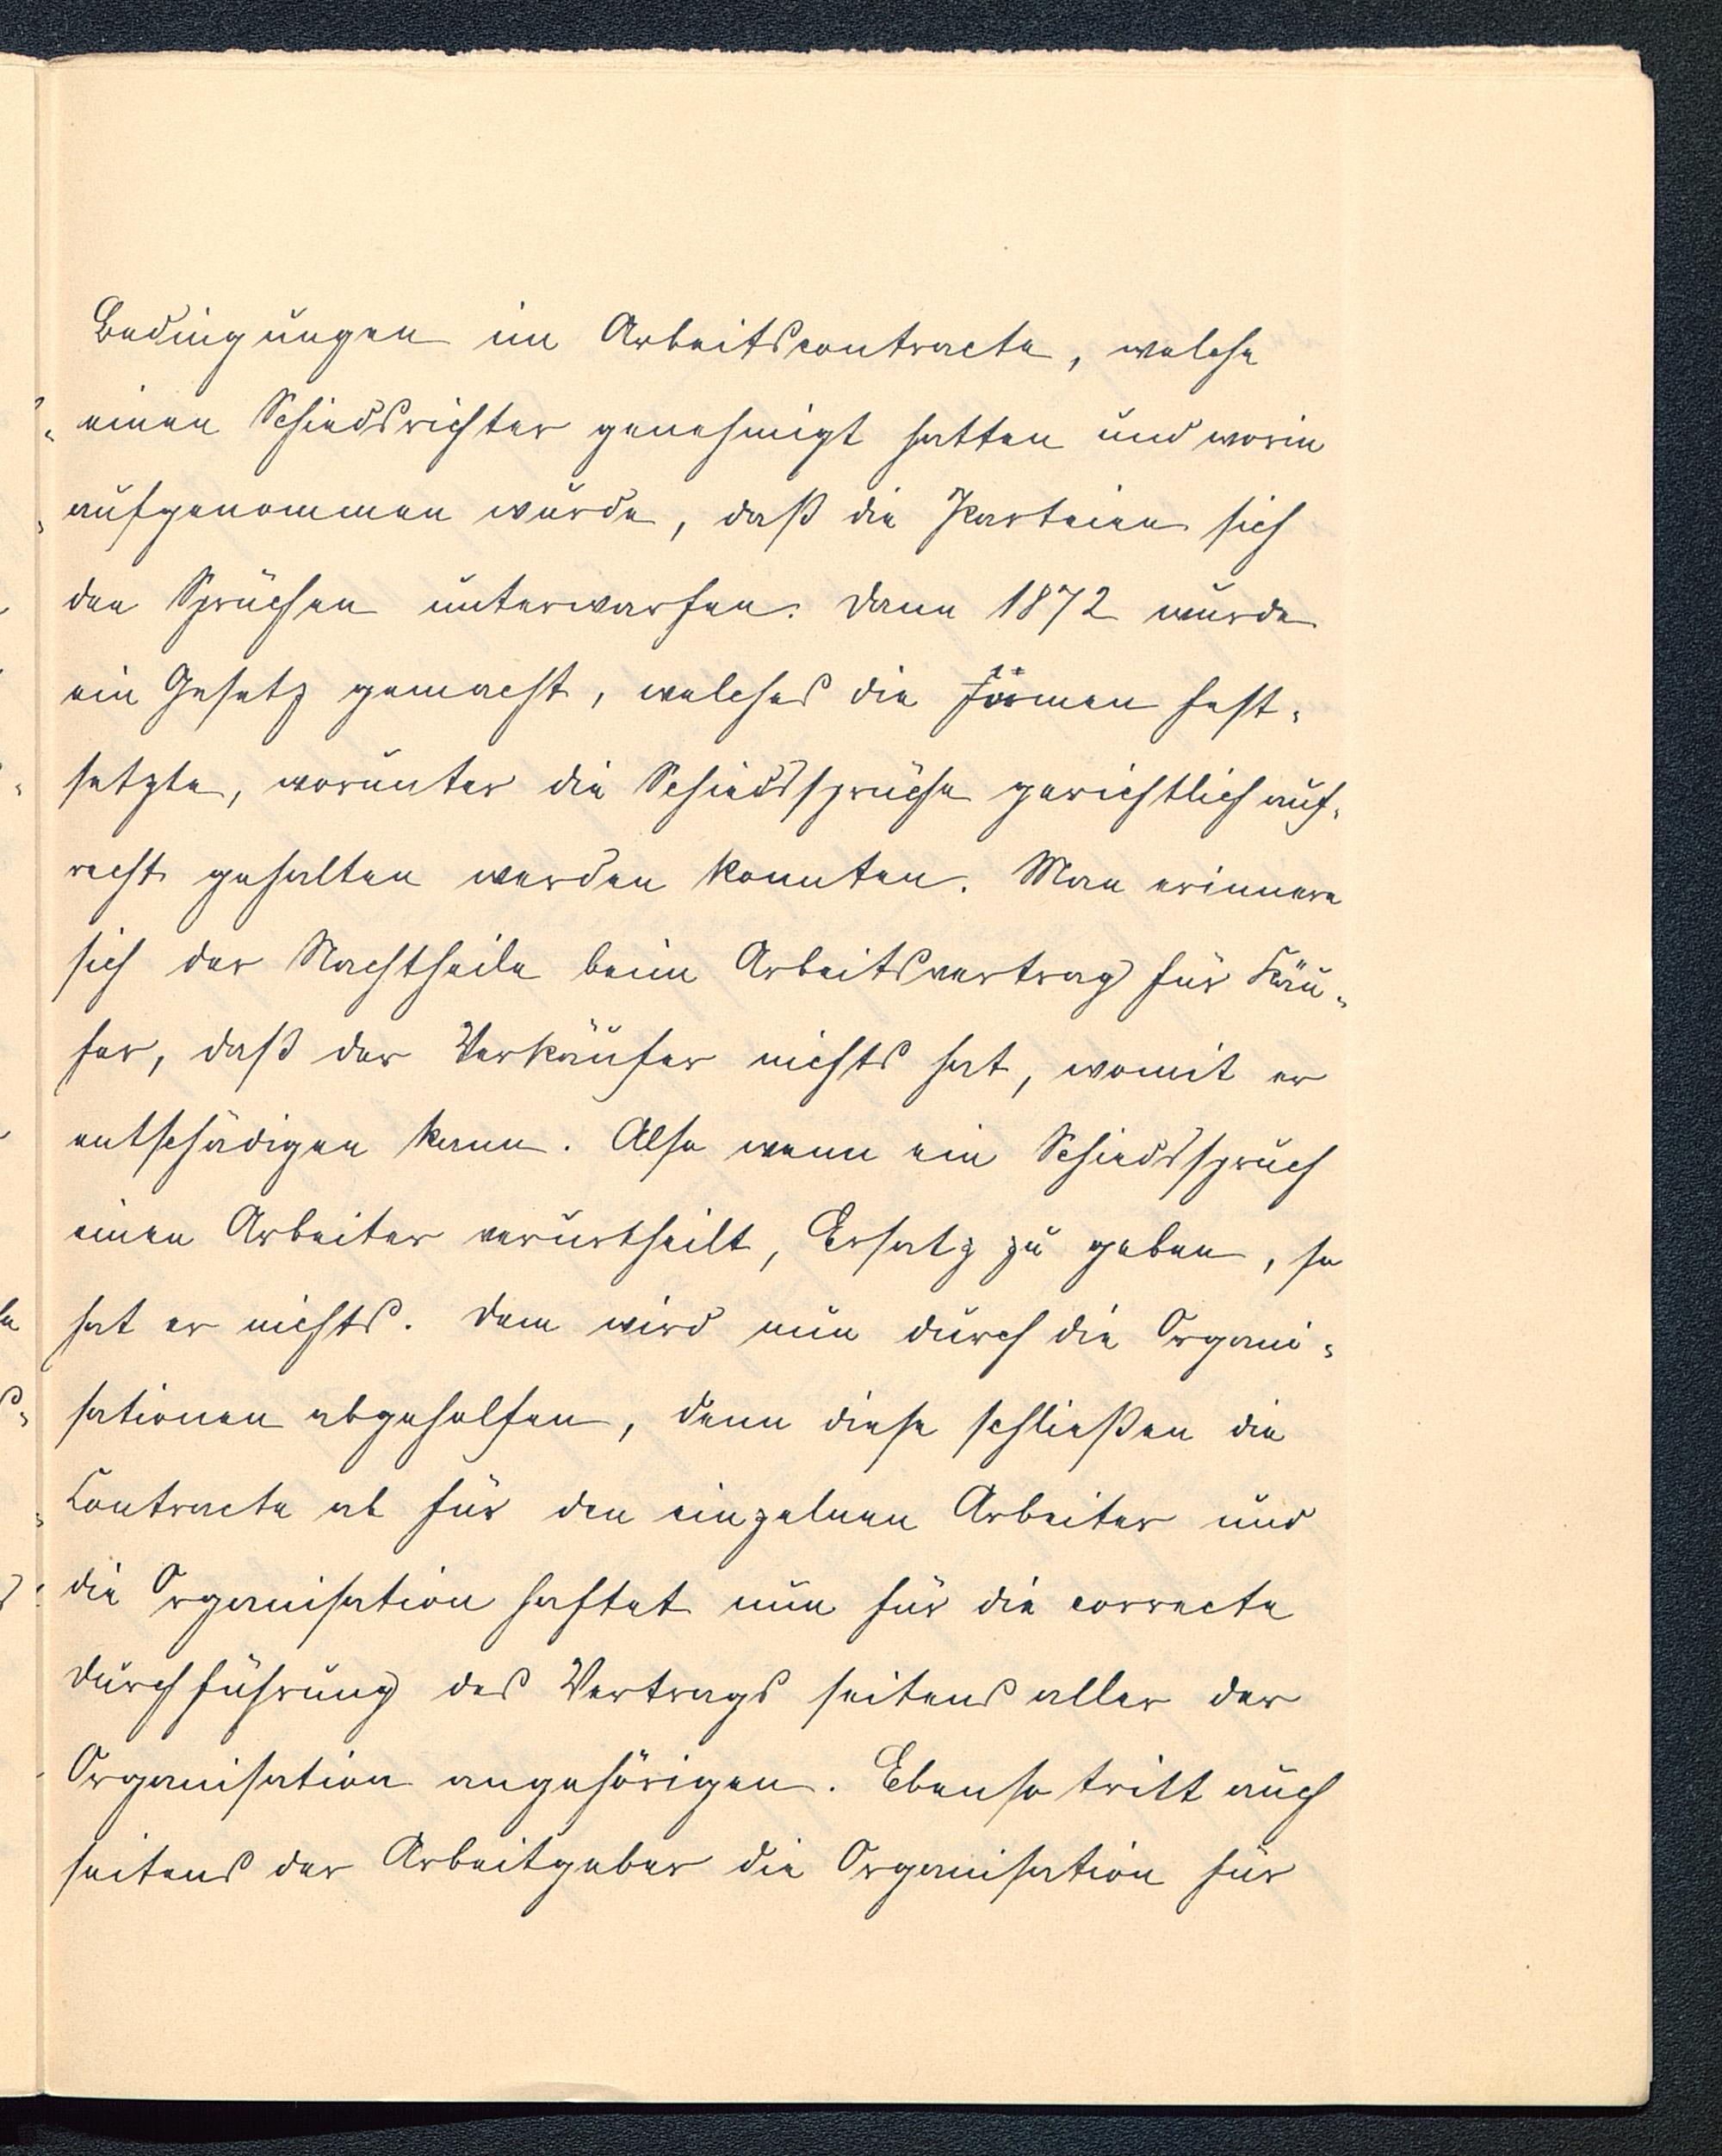 Bedingungen im Arbeitscontracte, welche
einen Schiedsrichter genehmigt hatten und worin
aufgenommen wurde, daß die Parteien sich
den Sprüchen unterwarfen. Dann 1872 wurde
ein Gesetz gemacht, welches die Formen fest-
setzte, worunter die Schiedssprüche gerichtlich auf-
recht gehalten werden konnten. Man erinnere
sich der Nachtheile beim Arbeitsvertrag für Käu-
fer, daß der Verkäufer nichts hat, womit er
entschädigen kann. Also wenn ein Schiedsspruch
einen Arbeiter verurtheilt, Ersatz zu geben, so
hat er nichts. Dem wird nun durch die Organi-
sationen abgeholfen, denn diese schließen die
Contracte ab für den einzelnen Arbeiter und
die Organisation haftet nun für die correcte
Durchführung des Vertrags seitens aller der
Organisation angehörigen. Ebenso tritt auch
seitens der Arbeitgeber die Organisation für